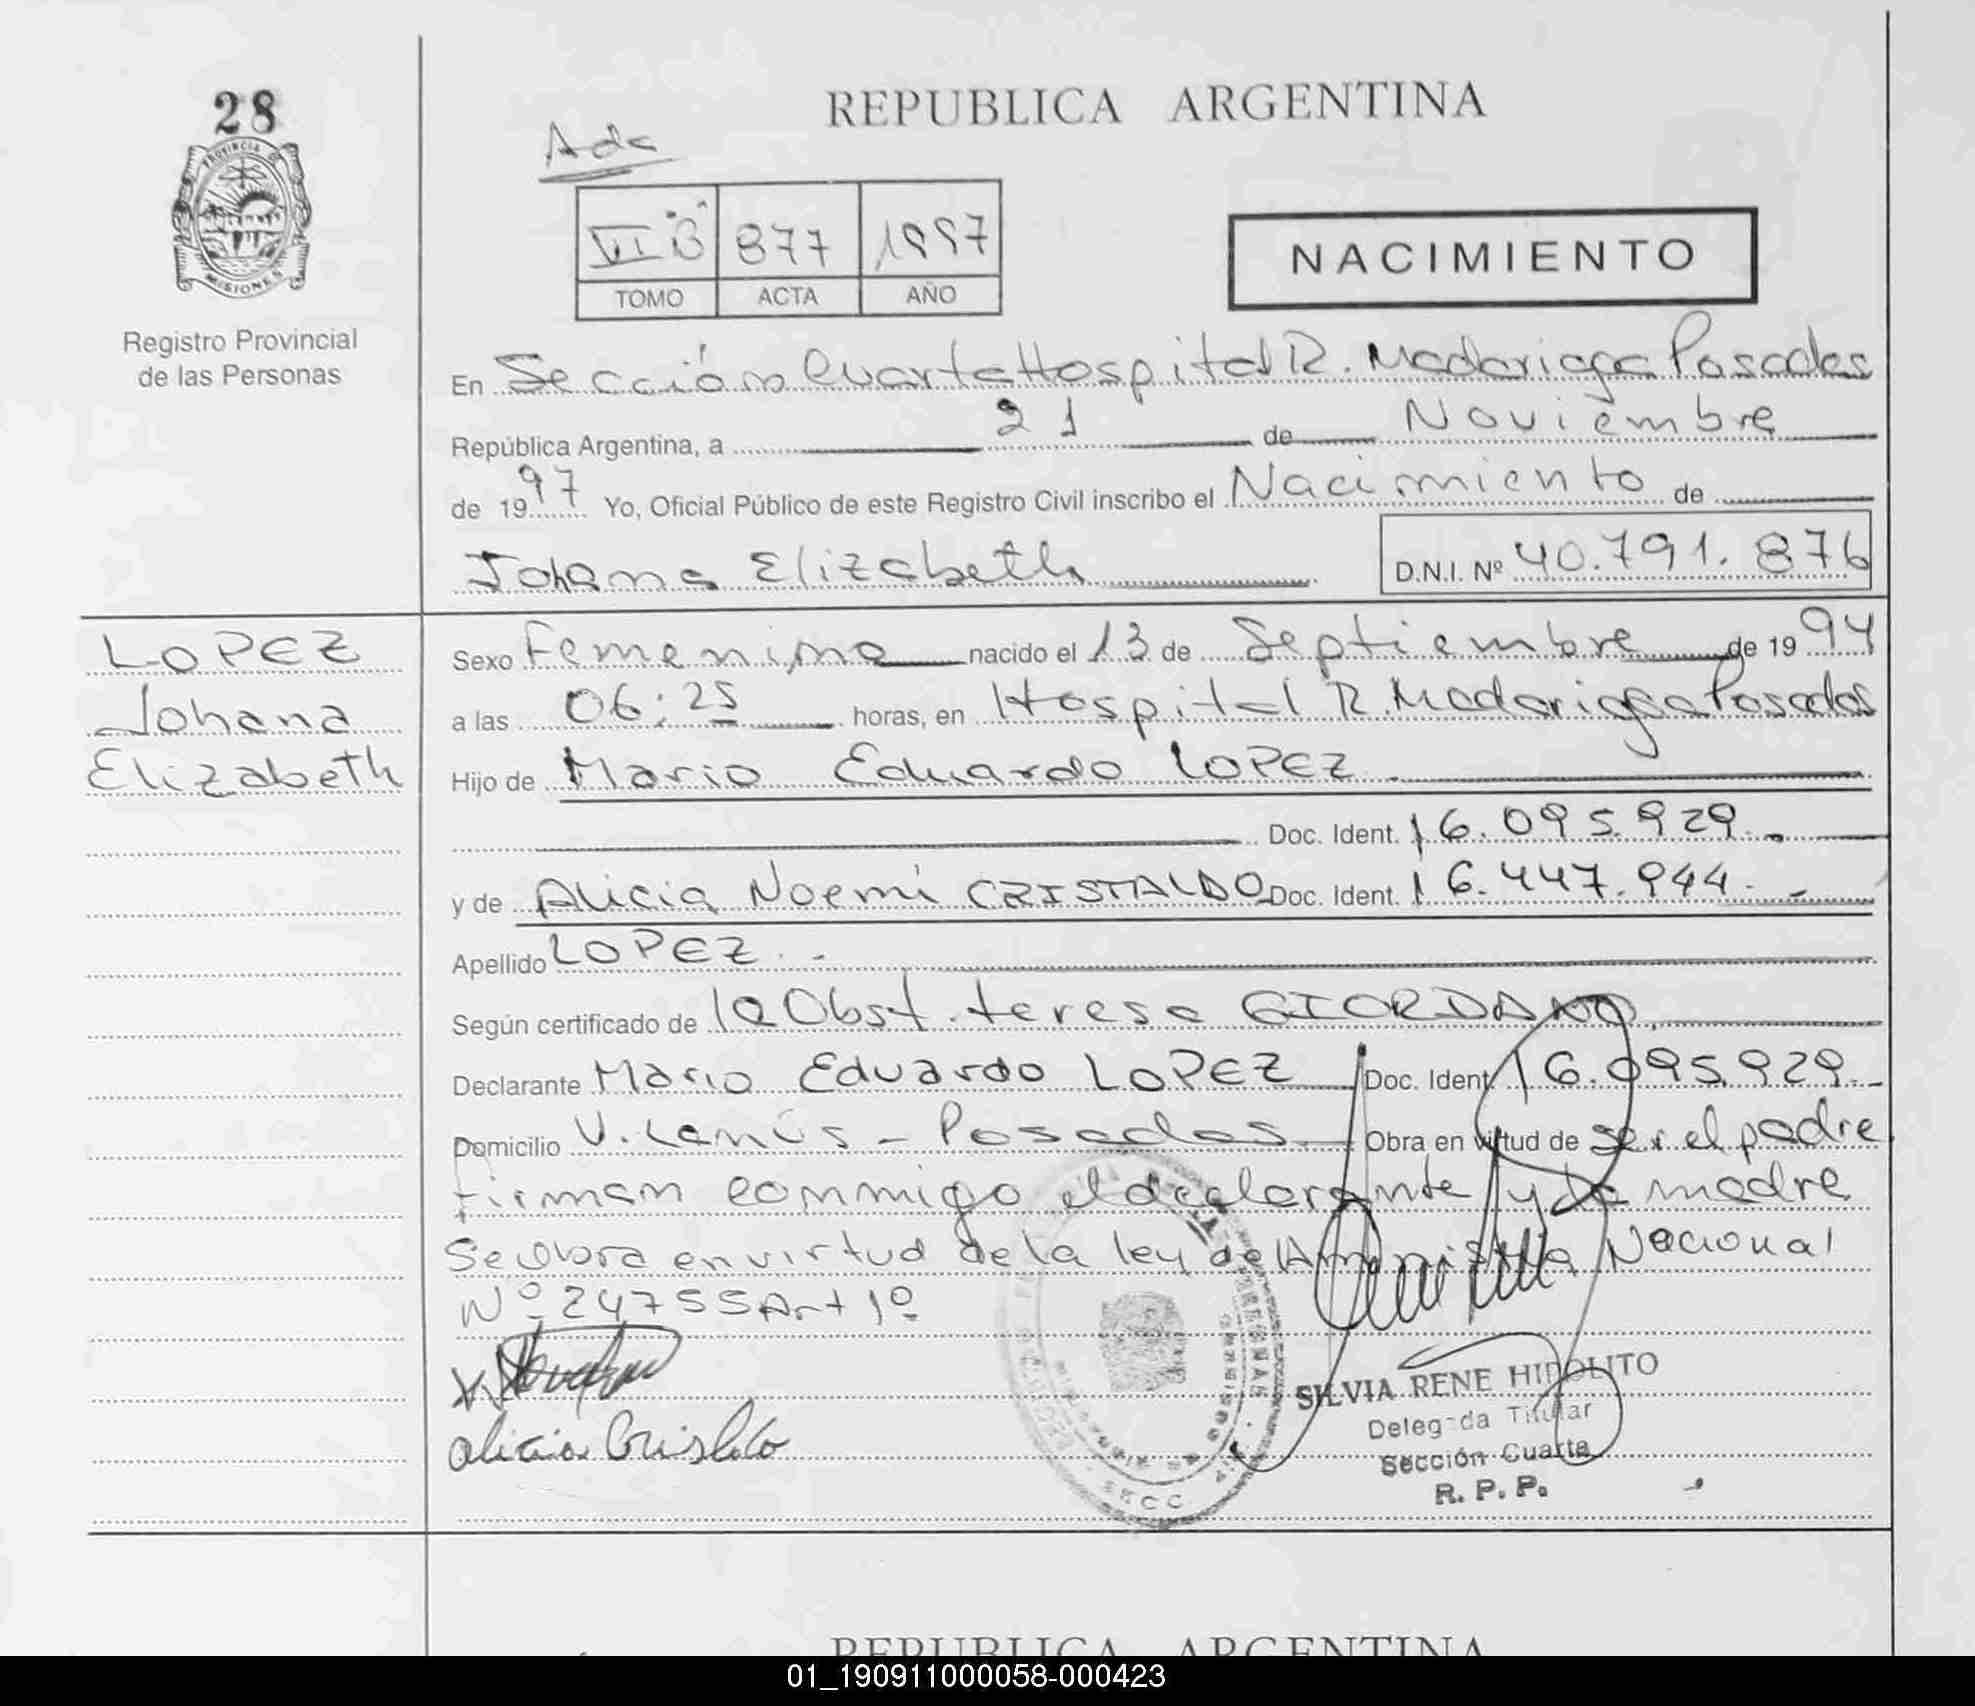 28
REPUBLICA ARGENTINA
PROVINCIA DE
MISIONES
Registro Provincial
de las Personas
VII "B" 877 1997
TOMO ACTA AÑO
NACIMIENTO
En Sección Cuarta Hospital R. Madariaga Posadas
República Argentina, a 21 de Noviembre
de 1997 Yo, Oficial Público de este Registro Civil inscribo el Nacimiento de
Johana Elizabeth D.N.I. Nº 40.791.876
LOPEZ
Johana
Elizabeth
Sexo Femenino nacido el 13 de Septiembre de 1994
a las 06:25 horas, en Hospital R. Madariaga Posadas
Hijo de Mario Eduardo LOPEZ
Doc. Ident. 16.095.929.-
y de Alicia Noemí CRISTALDO Doc. Ident. 16.447.944.-
Apellido LOPEZ.-
Según certificado de la Obst. teresa GIORDANO
Declarante Mario Eduardo LOPEZ Doc. Ident. 16.095.929.-
Domicilio V. Lanús - Posadas.- Obra en virtud de ser el padre
firman conmigo el declarante y la madre
Se Obra en virtud de la ley de Amnistía Nacional
Nº 24755 Art 1º
alicia Cristaldo
SILVIA RENE HIPOLITO
Delegada Titular
Sección Cuarta
R. P. P.
REPUBLICA ARGENTINA
01_190911000058-000423